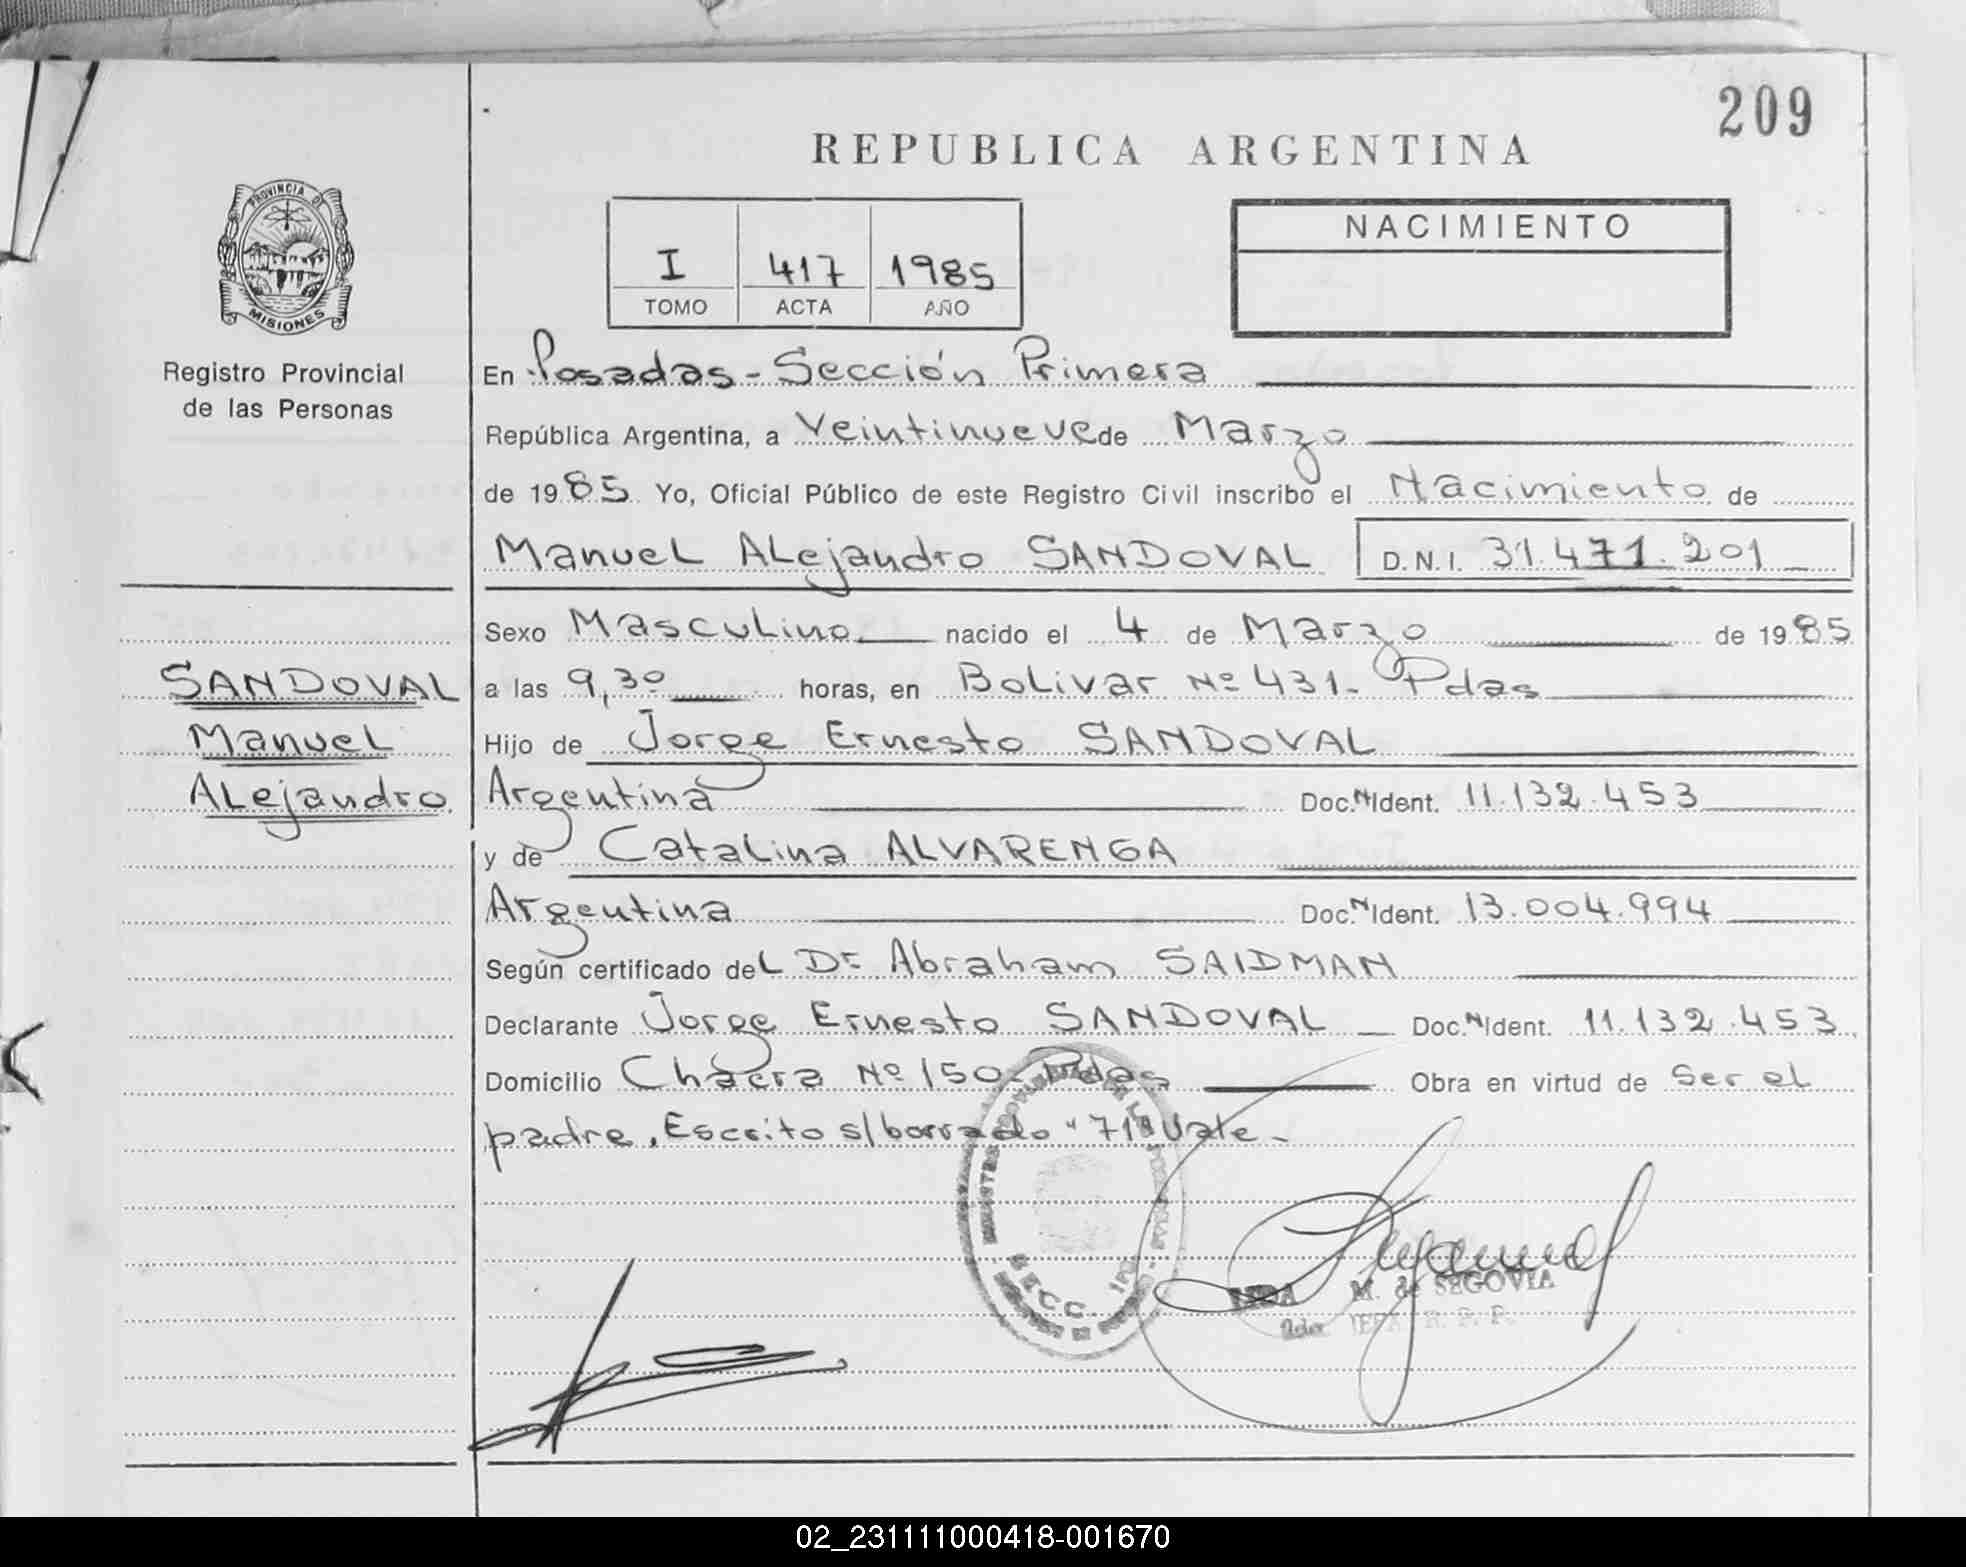 209
REPUBLICA ARGENTINA
PROVINCIA DE
MISIONES
I 417 1985
TOMO ACTA AÑO
NACIMIENTO
Registro Provincial
de las Personas
En Posadas - Sección Primera
República Argentina, a Veintinueve de Marzo
de 1985 Yo, Oficial Público de este Registro Civil inscribo el Nacimiento de
Manuel Alejandro SANDOVAL D.N.I. 31.471.201
Sexo Masculino nacido el 4 de Marzo de 1985
SANDOVAL
Manuel
Alejandro
a las 9,30 horas, en Bolivar Nº 431 - Pdas
Hijo de Jorge Ernesto SANDOVAL
Argentina Doc. N Ident. 11.132.453
y de Catalina ALVARENGA
Argentina Doc. N Ident. 13.004.994
Según certificado del Dr Abraham SAIDMAN
Declarante Jorge Ernesto SANDOVAL Doc. N Ident. 11.132.453
Domicilio Chacra Nº 150 - Pdas Obra en virtud de ser el
padre. Escrito s/borrado "71" Vale -
M. de SEGOVIA
02_231111000418-001670